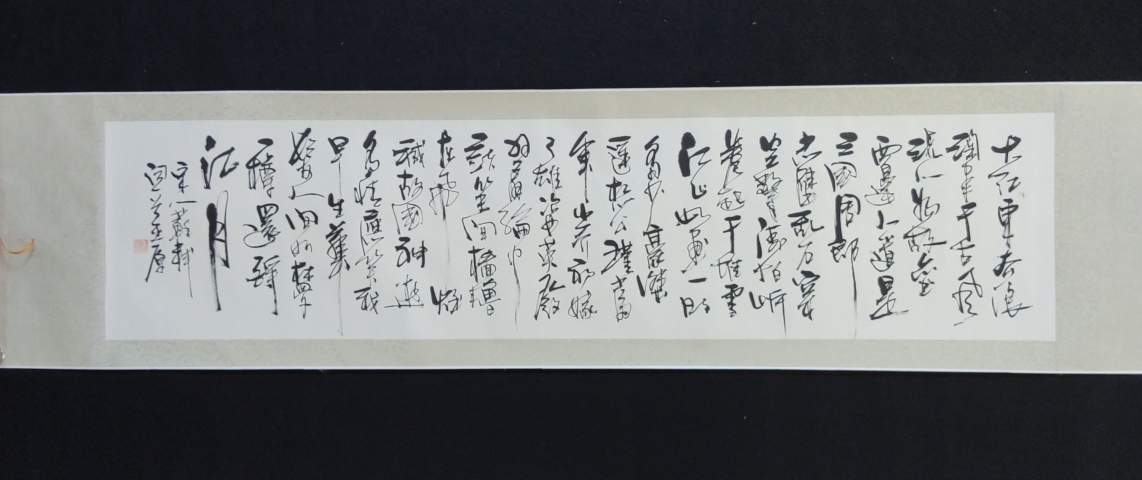 大江東去浪
淘盡千古風
流人物故壘
西邊人道是
三國周郎
赤壁亂石穿
空驚濤拍岸
卷起千堆雪
江山如畫一時
多少豪傑
遙想公瑾當
年小喬初嫁
了雄姿英發
羽扇綸巾
談笑間檣櫓
灰飛煙
滅故國神遊
多情應笑我
早生華
髮人間如夢
一樽還酹
江月
宋人蘇軾